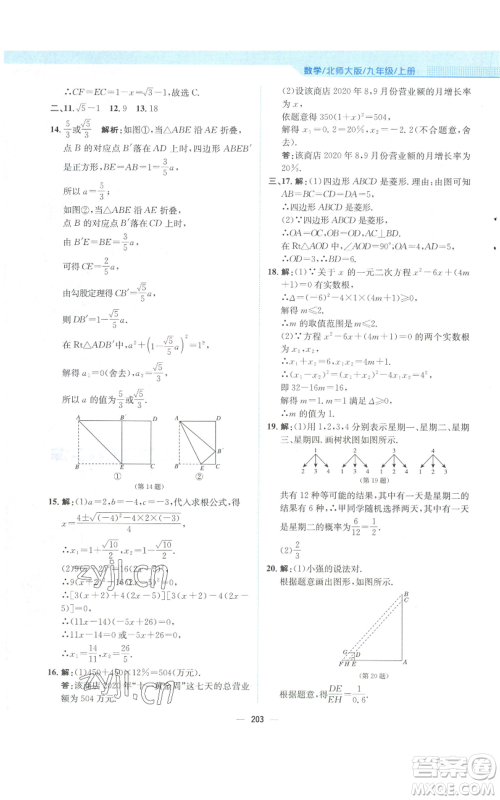 数学/北师大版/九年级/上册
∴CF=EC=1-x=√3-1. 故选 C.
二、11.√5-1 12.9 13.18
14. 5/3或√5/3 解析:如图①,当△ABE 沿 AE 折叠,
点 B 的对应点 B′落在 AD 上时,四边形 ABEB′
是正方形,BE=AB,即 3/5 a=1,
所以 a=5/3.
如图②,当△ABE 沿 AE 折叠,
点 B 的对应点 B′落在 CD 上时,
由 B′E=BE=3/5 a,
可得 CE=2/5 a,
由勾股定理得 CB′=√5/5 a,
所以 DB′=1-√5/5 a.
在 Rt△ADB′中,a²+(1-√5/5 a)²=1²,
解得 a₁=0(舍去),a₂=√5/3.
所以 a 的值为 5/3 或 √5/3.
A B D C E
① ②
(第 14 题)
15. 解:(1)a=2,b=-4,c=-3,代入求根公式,得
x=4±√((-4)²-4×2×(-3))/(2×2),
∴x₁=1-√10/2,x₂=1+√10/2.
∴[3(x+2)+4(2x-4)]
[3(x+2)-4(2x-4)]=0.
∴(11x-14)(-5x+22)=0.
∴(11x-14)(5x-22)=0.
16. 解:(1)450+450×12%=504(万元).
答:该商店 2020 年“十一黄金周”这七天的总营业
额为 504 万元.
(2)设该商店 2020 年 8,9 月份营业额的月增长率
为 x.
答:该商店 2020 年 8,9 月份营业额的月增长率为
20%.
三、17. 解:(1)四边形 ABCD 是菱形. 理由:由图可知
AB=BC=CD=AD,
∴四边形 ABCD 是菱形.
(2)∵四边形 ABCD 是菱形,
∴OA=OC,AC⊥BD.
18. 解:(1)∵关于 x 的一元二次方程 x²-6x+(4m
+1)=0 有实数根,
∴Δ=(-6)²-4×1×(4m+1)≥0,
解得 m≤2.
∴m 的取值范围是 m≤2.
(2)∵方程 x²-6x+(4m+1)=0 的两个实数根
为 x₁,x₂,
∴x₁+x₂=6,x₁x₂=4m+1.
∴(x₁-x₂)²=(x₁+x₂)²-4x₁x₂=4²,
即 32-16m=16,
解得 m=1.
19. 解:(1)用 1,2,3,4 分别表示星期一、星期二、星期
三、星期四. 画树状图如图所示.
1 2 3 4
2 3 4 1 3 4 1 2 4 1 2 3
(第 19 题)
共有 12 种等可能的结果,其中有一天是星期二的
结果有 6 种,
∴甲同学随机选择两天,其中有一天是星期二的
概率为 6/12=1/2.
(2)2/3
20. 解:(1)小强的说法对.
根据题意画出图形,如图所示.
B
C
F H E G A
(第 20 题)
根据题意,得 DE/EH=1/0.6.
203
zyjl.cn
答案